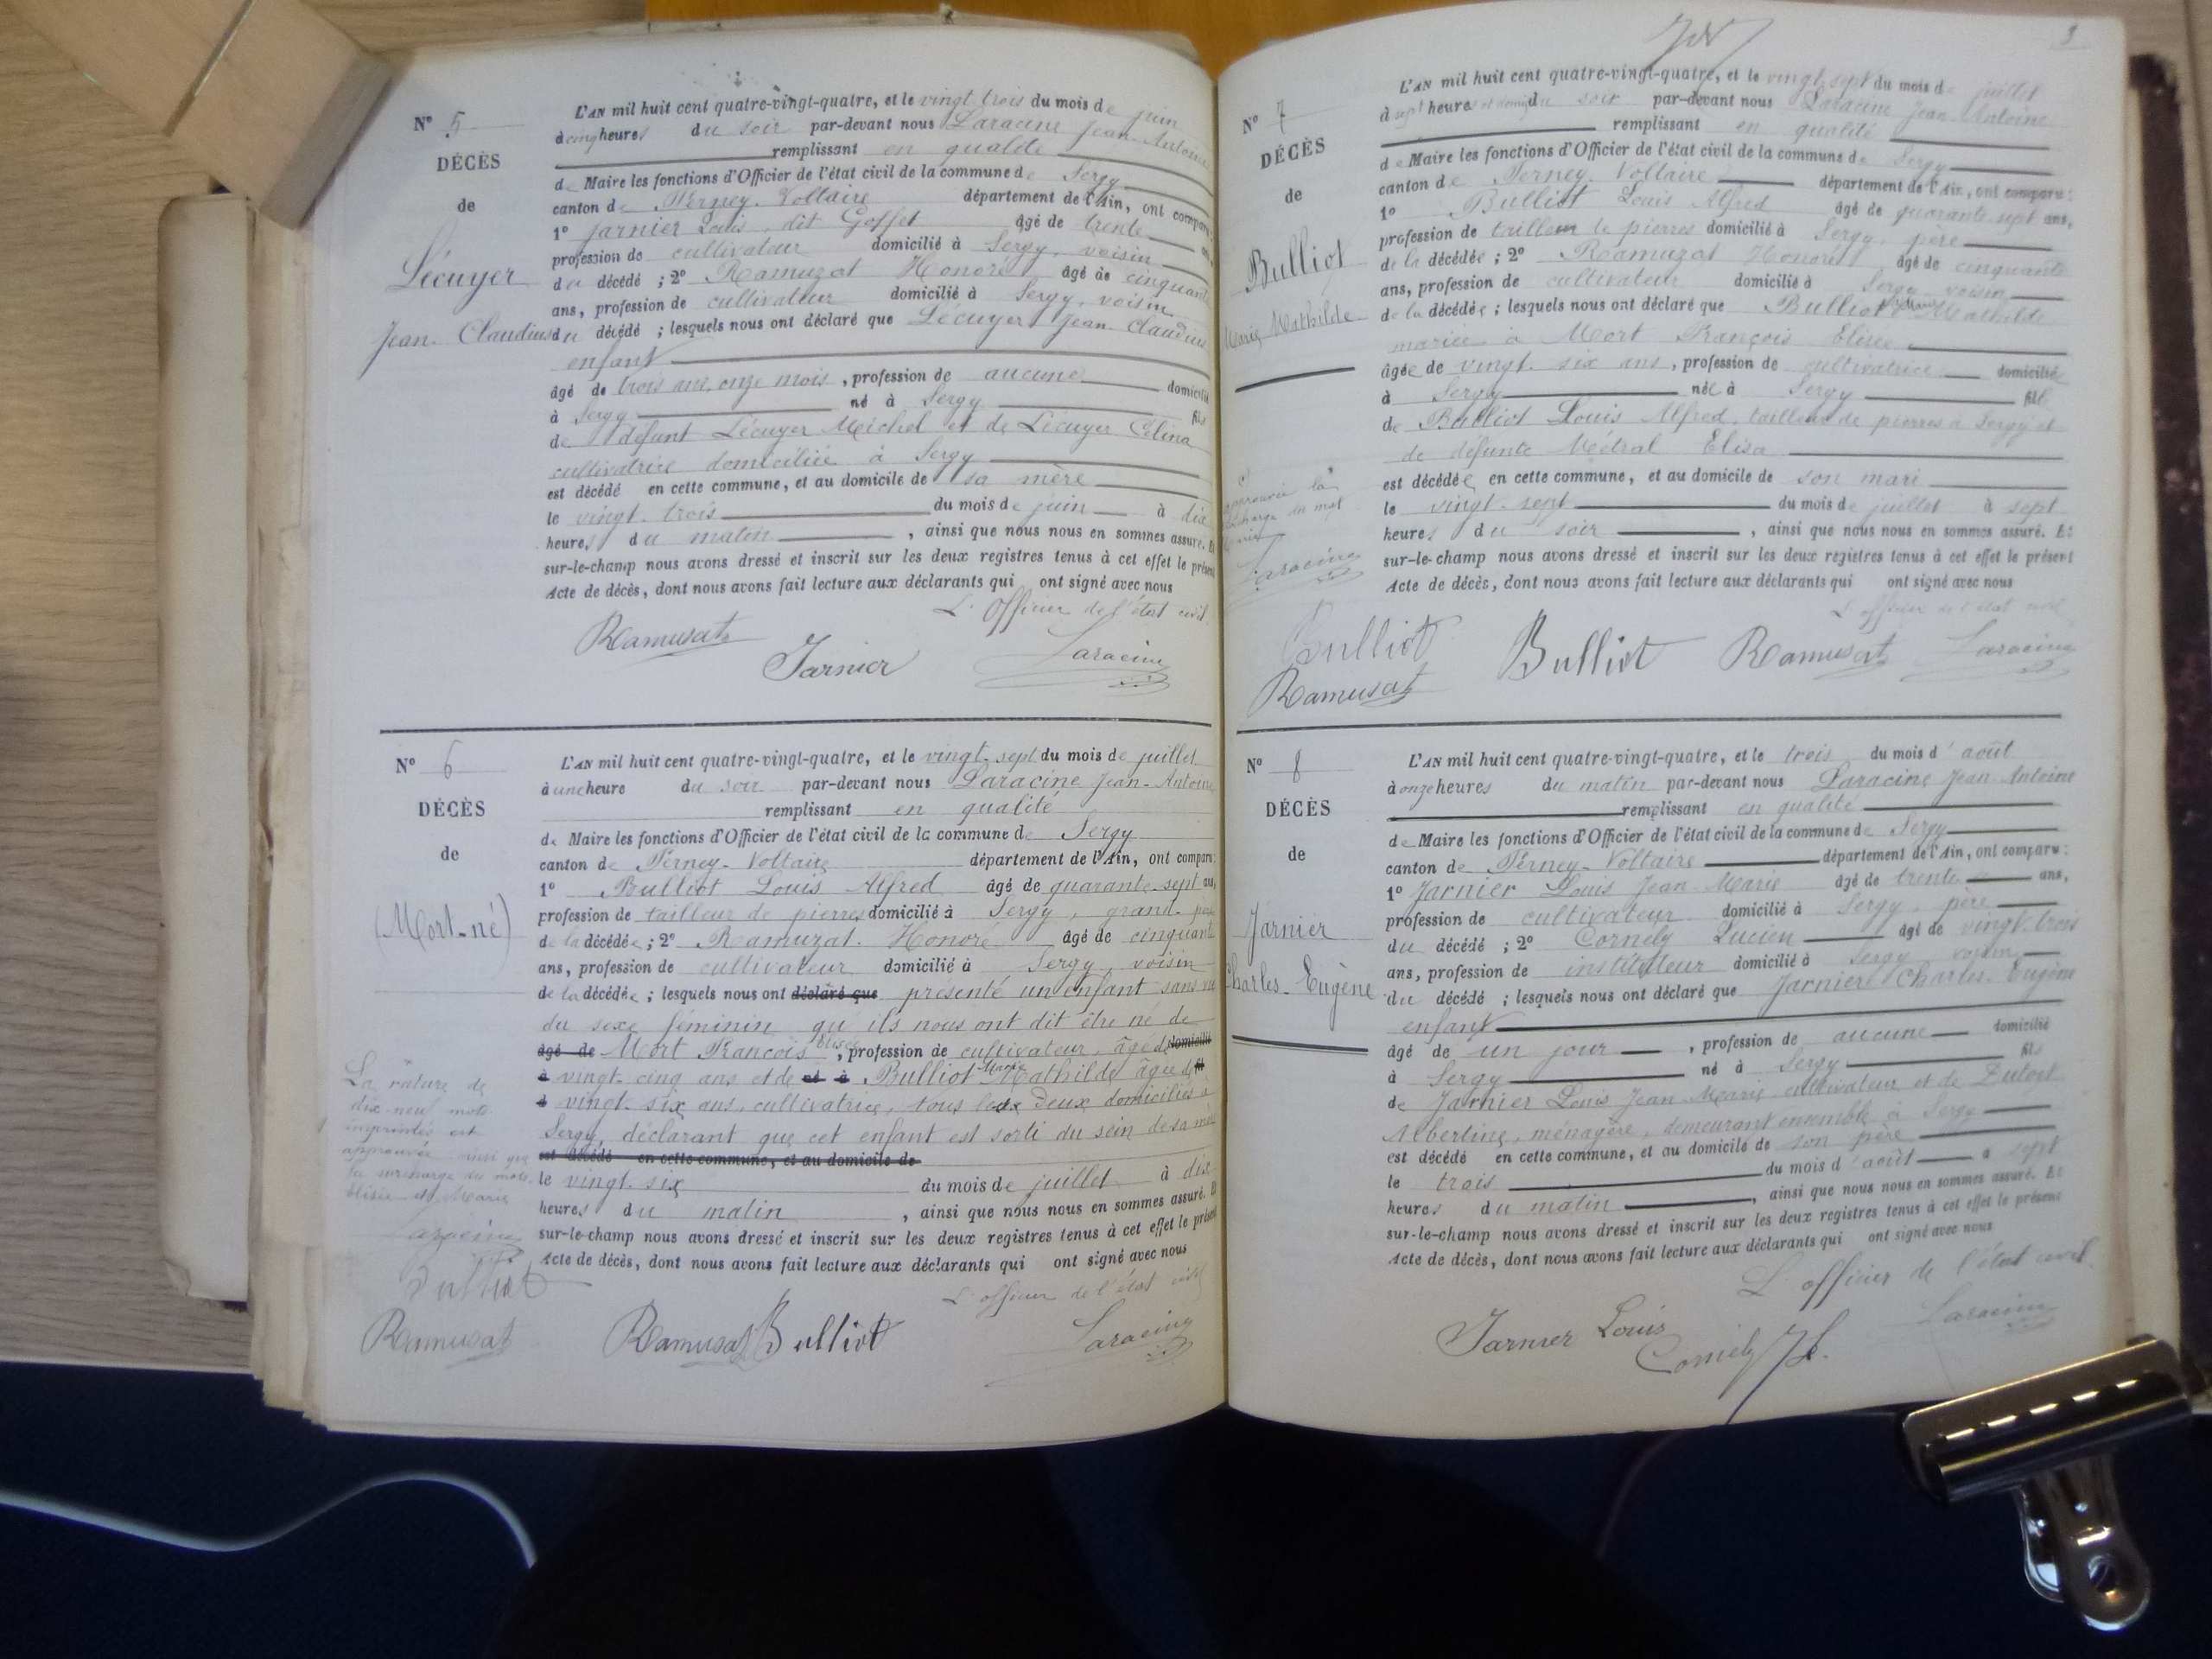 N° 5
DÉCÈS
de
Lécuyer
Jean-Claudius
L'AN mil huit cent quatre-vingt-quatre, et le vingt trois du mois de juin
à cinq heures du soir par-devant nous Laracine Jean-Antoine
remplissant en qualité
de Maire les fonctions d'Officier de l'état civil de la commune de Sergy
canton de Ferney-Voltaire département de l'Ain, ont comparu:
1° Jarnier Louis, dit Goffet âgé de trente ans,
profession de cultivateur domicilié à Sergy, voisin
du décédé ; 2° Ramuzat Honoré âgé de cinquante
ans, profession de cultivateur domicilié à Sergy, voisin
du décédé ; lesquels nous ont déclaré que Lécuyer Jean-Claudius
enfant
âgé de trois ans, onze mois, profession de aucune domicilié
à Sergy né à Sergy fils
de défunt Lécuyer Michel et de Lécuyer Célina
cultivatrice domiciliée à Sergy
est décédé en cette commune, et au domicile de sa mère
le vingt-trois du mois de juin à dix
heures du matin, ainsi que nous nous en sommes assuré. Et
sur-le-champ nous avons dressé et inscrit sur les deux registres tenus à cet effet le présent
Acte de décès, dont nous avons fait lecture aux déclarants qui ont signé avec nous
L'Officier de l'état civil
Ramusat Jarnier Laracine
N° 6
DÉCÈS
de
(Mort-né)
L'AN mil huit cent quatre-vingt-quatre, et le vingt-sept du mois de juillet
à une heure du soir par-devant nous Laracine Jean-Antoine
remplissant en qualité
de Maire les fonctions d'Officier de l'état civil de la commune de Sergy
canton de Ferney-Voltaire département de l'Ain, ont comparu:
1° Bulliot Louis Alfred âgé de quarante-sept ans,
profession de tailleur de pierres domicilié à Sergy, grand-père
de la décédée ; 2° Ramuzat Honoré âgé de cinquante
ans, profession de cultivateur domicilié à Sergy, voisin
de la décédée ; lesquels nous ont déclaré que présenté un enfant sans vie
du sexe féminin qu'ils nous ont dit être né de
âgé de Mort François Elisée, profession de cultivateur, âgé de domicilié
à vingt-cinq ans et de né à Bulliot Marie Mathilde âgée de fil
d vingt-six ans, cultivatrice, tous les deux domiciliés à
Sergy, déclarant que cet enfant est sorti du sein de sa mère
est décédé en cette commune, et au domicile de
le vingt-six du mois de juillet à dix
heures du matin, ainsi que nous nous en sommes assuré. Et
sur-le-champ nous avons dressé et inscrit sur les deux registres tenus à cet effet le présent
Acte de décès, dont nous avons fait lecture aux déclarants qui ont signé avec nous
L'officier de l'état civil
La rature de
dix-neuf mots
imprimés est
approuvée ainsi que
la surcharge des mots
Elisée et Marie
Laracine
Bulliot
Ramusat
Ramusat Bulliot Laracine
3
N° 7
DÉCÈS
de
Bulliot
Marie Mathilde
L'AN mil huit cent quatre-vingt-quatre, et le vingt-sept du mois de juillet
à sept heures et demie du soir par-devant nous Laracine Jean-Antoine
remplissant en qualité
de Maire les fonctions d'Officier de l'état civil de la commune de Sergy
canton de Ferney-Voltaire département de l'Ain, ont comparu:
1° Bulliot Louis Alfred âgé de quarante-sept ans,
profession de tailleur de pierres domicilié à Sergy, père
de la décédée ; 2° Ramuzat Honoré âgé de cinquante
ans, profession de cultivateur domicilié à Sergy, voisin
de la décédée ; lesquels nous ont déclaré que Bulliot Marie Mathilde
mariée à Mort François Elisée
âgée de vingt-six ans, profession de cultivatrice domiciliée
à Sergy née à Sergy fille
de Bulliot Louis Alfred, tailleur de pierres à Sergy et
de défunte Métral Elisa
est décédée en cette commune, et au domicile de son mari
le vingt-sept du mois de juillet à sept
heures du soir, ainsi que nous nous en sommes assuré. Et
sur-le-champ nous avons dressé et inscrit sur les deux registres tenus à cet effet le présent
Acte de décès, dont nous avons fait lecture aux déclarants qui ont signé avec nous
L'officier de l'état civil
approuvée la
surcharge du mot
Marie
Laracine
Bulliot
Ramusat
Bulliot Ramusat Laracine
N° 8
DÉCÈS
de
Jarnier
Charles-Eugène
L'AN mil huit cent quatre-vingt-quatre, et le trois du mois d'août
à onze heures du matin par-devant nous Laracine Jean-Antoine
remplissant en qualité
de Maire les fonctions d'Officier de l'état civil de la commune de Sergy
canton de Ferney-Voltaire département de l'Ain, ont comparu:
1° Jarnier Louis Jean-Marie âgé de trente ans,
profession de cultivateur domicilié à Sergy, père
du décédé ; 2° Cornély Lucien âgé de vingt-trois
ans, profession de instituteur domicilié à Sergy, voisin
du décédé ; lesquels nous ont déclaré que Jarnier Charles-Eugène
enfant
âgé de un jour, profession de aucune domicilié
à Sergy né à Sergy fils
de Jarnier Louis Jean-Marie cultivateur et de
Albertine, ménagère, demeurant ensemble à Sergy
est décédé en cette commune, et au domicile de son père
le trois du mois d'août à sept
heures du matin, ainsi que nous nous en sommes assuré. Et
sur-le-champ nous avons dressé et inscrit sur les deux registres tenus à cet effet le présent
Acte de décès, dont nous avons fait lecture aux déclarants qui ont signé avec nous
L'officier de l'état civil
Jarnier Louis Cornély Laracine